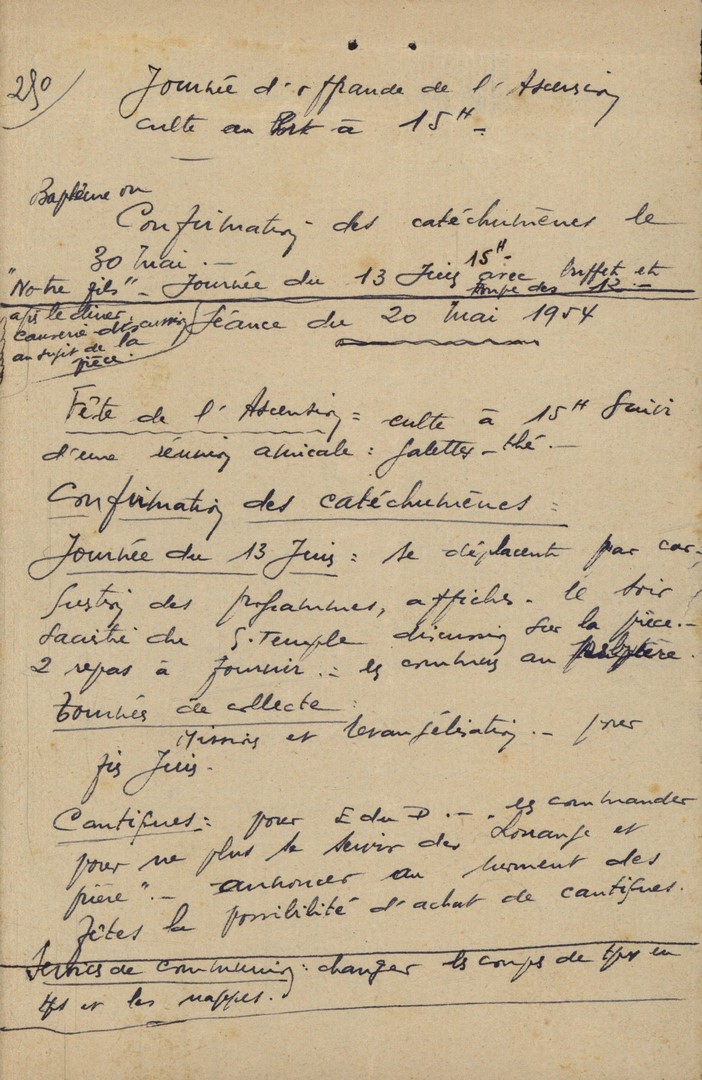 250
Journée d'offrande de l'Ascension
culte au Port à 15H -
Baptême ou
Confirmation des catéchumènes le
30 Mai . -
"Notre fils" - Journée du 13 Juin 15H - avec buffet et
troupe des 12. -
apr le dîner:
causerie discussion
au sujet de la
pièce.
Séance du 20 Mai 1954
Fête de l'Ascension = culte à 15H Suivi
d'une réunion amicale : Galettes - thé. -
Confirmation des catéchumènes =
Journée du 13 Juin : se déplacent par car -
des programmes, affiches - le soir
Sacristie du G. Temple discussion sur la pièce. -
2 repas à fournir. - au presbytère.
Tournées de collecte :
Missions et évangélisation. - pour
fin Juin -
Cantiques = pour E du D. - . es commander
pour ne plus se servir des "Louange et
prière". - annoncer au moment des
fêtes la possibilité d'achat de cantiques.
Services de communion : changer les coupes de tps en
tps et les nappes.